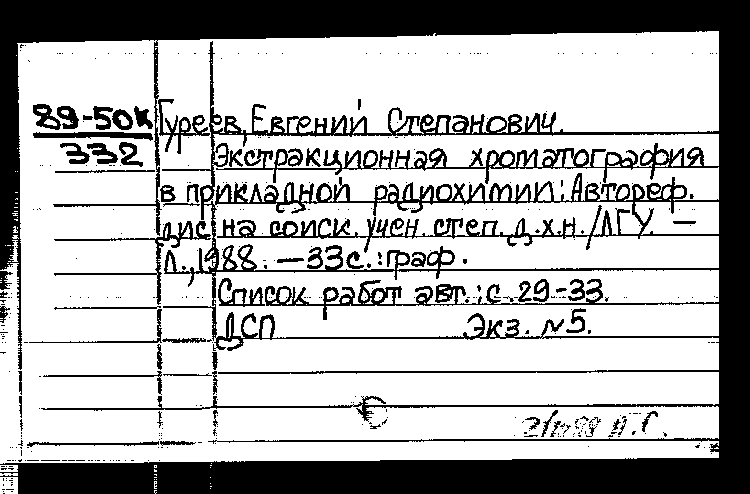 89-50к Гуреев, Евгений Степанович.
332 Экстракционная хроматография
в прикладной радиохимии: Автореф.
дис на соиск. учен. степ. д.х.н./ЛГУ. —
Л., 1988. — 33с.: граф.
Список работ авт.: с. 29-33.
ДСП Экз. №5.